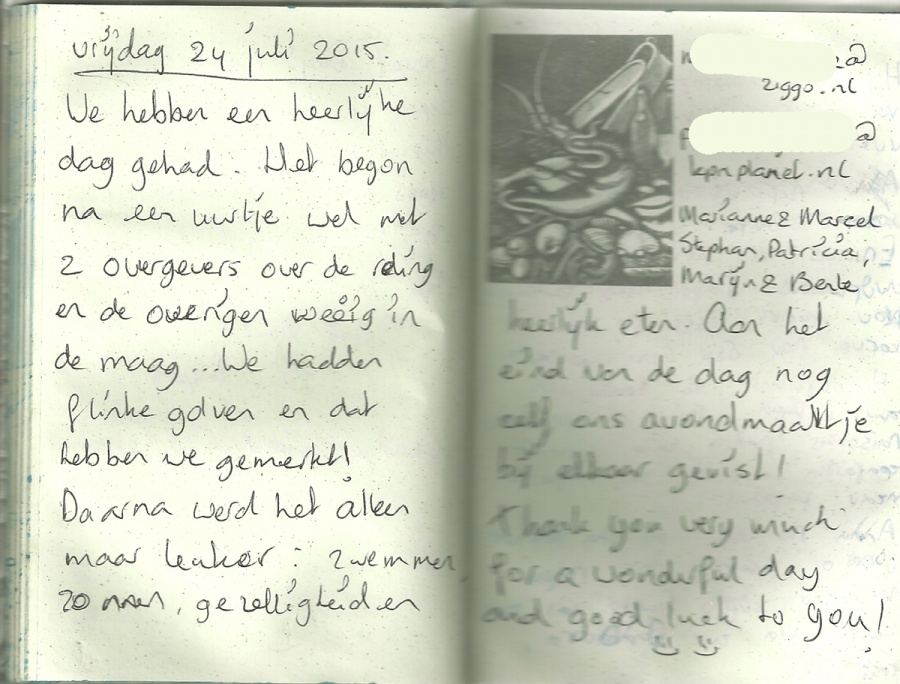 vrijdag 24 juli 2015.
We hebben een heerlijke
dag gehad. Het begon
na een uurtje wel met
2 overgevers over de reling
en de overigen weeïg in
de maag...We hadden
flinke golven en dat
hebben we gemerkt!
Daarna werd het alleen
maar leuker: zwemmen,
zonnen, gezelligheid en
@
ziggo.nl
@
kpnplanet.nl
Marianne & Marcel
Stephan, Patricia,
Marijn &
heerlijk eten. Aan het
eind van de dag nog
zelf ons avondmaaltje
bij elkaar gevist!
Thank you very much
for a wonderful day
and good luck to you!